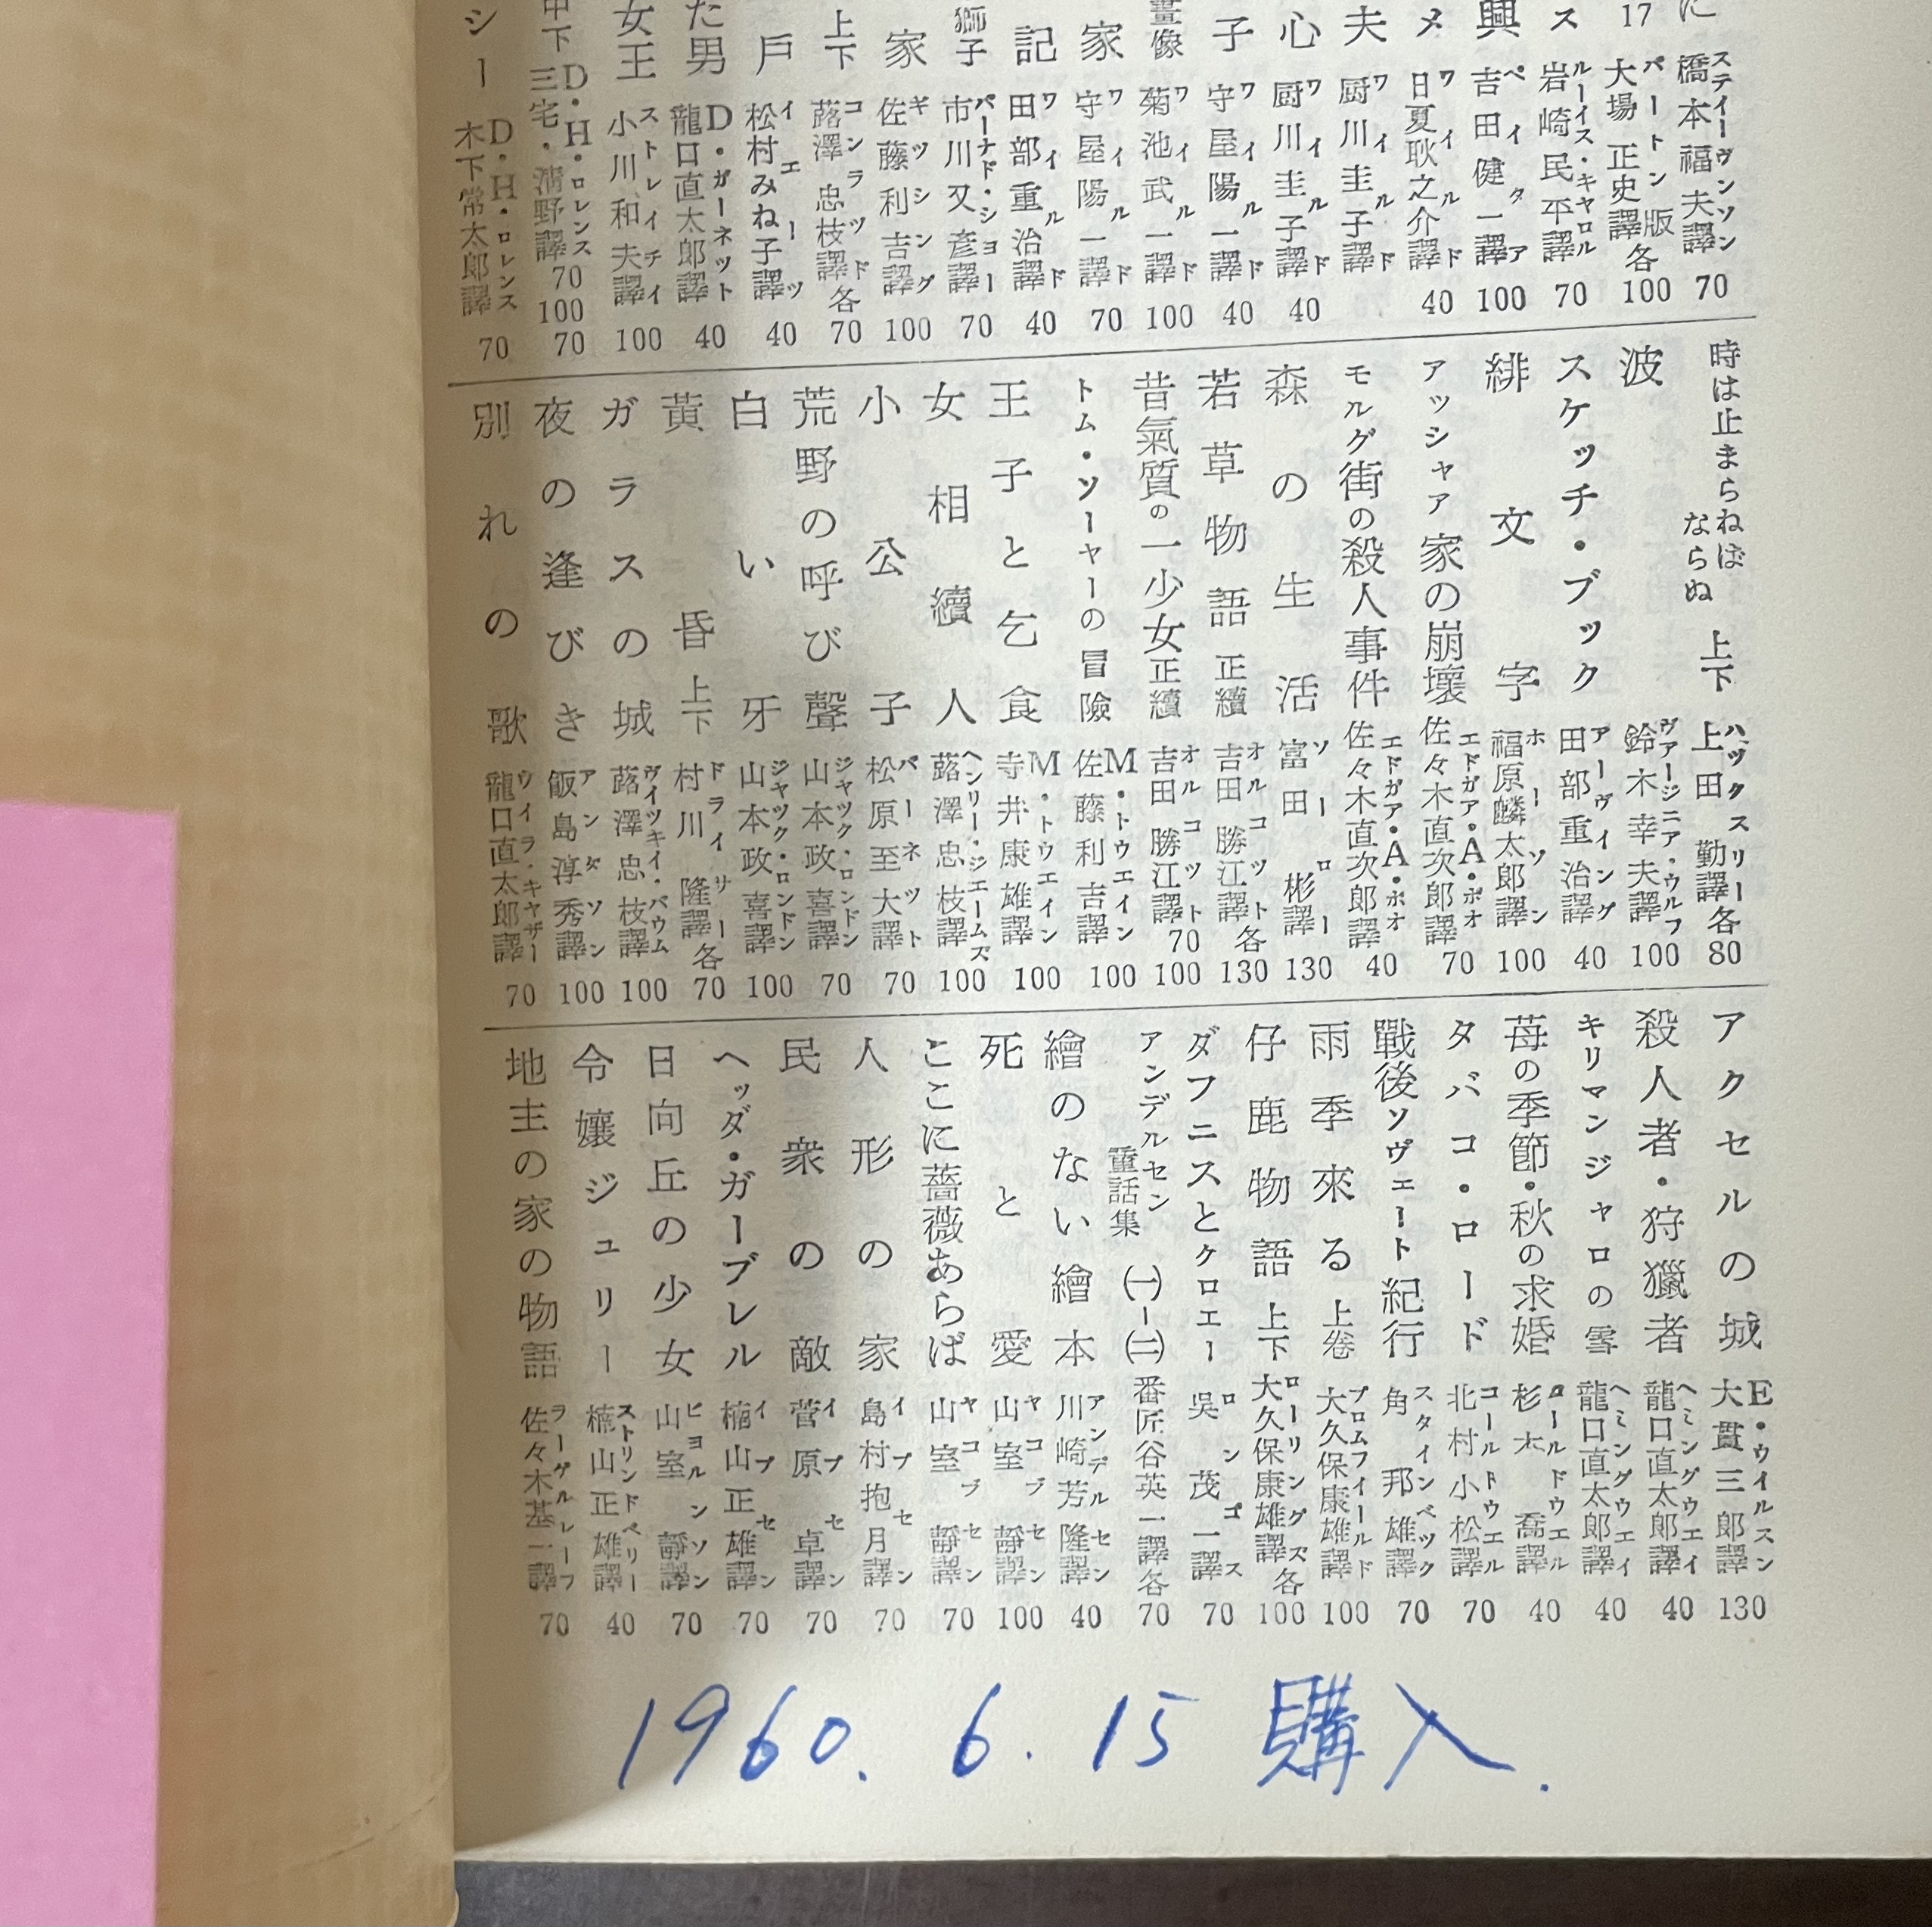 橋本福夫譯 スティーヴンソン 70
17 大場正史譯 バートン版 各100
ス 岩崎民平譯 ルーイス・キャロル 70
興 吉田健一譯 ペイタア 100
メ 日夏耿之介譯 ワイルド 40
夫 厨川圭子譯 ワイルド
心 厨川圭子譯 ワイルド 40
子 守屋陽一譯 ワイルド 40
畫像 菊池武一譯 ワイルド 100
家 守屋陽一譯 ワイルド 70
記 田部重治譯 ワイルド 40
獅子 市川又彦譯 バーナド・ショー 70
家 佐藤利吉譯 ギッシング 100
上下 蕗澤忠枝譯 コンラッド 各70
戸 松村みね子譯 イエーツ 40
た男 龍口直太郎譯 D・ガーネット 40
女王 小川和夫譯 ストレイチイ 100
中下 三宅・清野譯 D・H・ロレンス 70 100 70
シー 木下常太郎譯 D・H・ロレンス 70
時は止まらねばならぬ 上下 上田勤譯 ハックスリー 各80
波 鈴木幸夫譯 ヴァージニア・ウルフ 100
スケッチ・ブック 田部重治譯 アーヴィング 40
緋文字 福原麟太郎譯 ホーソン 100
アッシャア家の崩壞 佐々木直次郎譯 エドガア・A・ポオ 70
モルグ街の殺人事件 佐々木直次郎譯 エドガア・A・ポオ 40
森の生活 富田彬譯 ソーロー 130
若草物語 正續 吉田勝江譯 オルコット 各130
昔氣質の一少女 正續 吉田勝江譯 オルコット 70 100
トム・ソーヤーの冒險 佐藤利吉譯 M・トウエイン 100
王子と乞食 寺井康雄譯 M・トウエイン 100
女相續人 蕗澤忠枝譯 ヘンリー・ジェームズ 100
小公子 松原至大譯 バーネット 70
荒野の呼び聲 山本政喜譯 ジャック・ロンドン 70
白い牙 山本政喜譯 ジャック・ロンドン 100
黄昏 上下 村川隆譯 ドライサー 各70
ガラスの城 蕗澤忠枝譯 ヴィツキイ・バウム 100
夜の逢びき 飯島淳秀譯 アンダソン 100
別れの歌 龍口直太郎譯 ウイラ・キャザー 70
アクセルの城 大貫三郎譯 E・ウイルスン 130
殺人者・狩獵者 龍口直太郎譯 ヘミングウエイ 40
キリマンジャロの雪 龍口直太郎譯 ヘミングウエイ 40
苺の季節・秋の求婚 杉木喬譯 コールドウエル 40
タバコ・ロード 北村小松譯 コールドウエル 70
戰後ソヴェート紀行 角邦雄譯 スタインベック 70
雨季來る 上卷 大久保康雄譯 ブロムフイールド 100
仔鹿物語 上下 大久保康雄譯 ローリングズ 各100
ダフニスとクロエー 呉茂一譯 ロンゴス 70
アンデルセン童話集 (一)—(二) 番匠谷英一譯 各70
繪のない繪本 川崎芳隆譯 アンデルセン 40
死と愛 山室靜譯 ヤコブセン 100
ここに薔薇あらば 山室靜譯 ヤコブセン 70
人形の家 島村抱月譯 イプセン 70
民衆の敵 菅原卓譯 イプセン 70
ヘッダ・ガーブレル 楠山正雄譯 イプセン 70
日向丘の少女 山室靜譯 ビヨルンソン 70
令孃ジュリー 楠山正雄譯 ストリンドベリー 40
地主の家の物語 佐々木基一譯 ラーゲルレーフ 70
1960. 6. 15 購入.